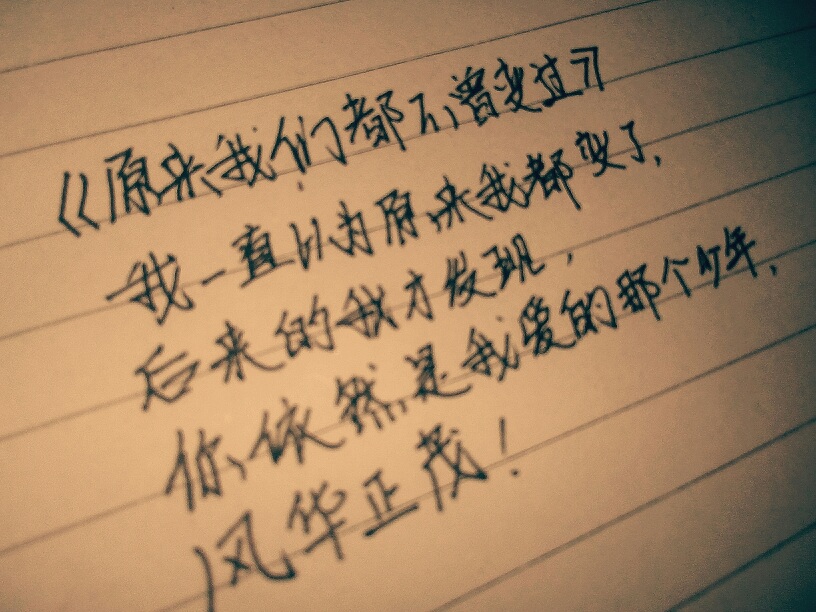 《原来我们都不曾变过》
我一直以为原来我都变了,
后来的我才发现,
你依然是我爱的那个少年,
风华正茂!